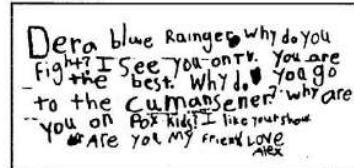 Dera blue Rainger Why do you
Fight? I See you on TV. You are
the best. Why do you go
to the cumansener? why are
you on Pox Kids? I like your show
Are you my friend Love
Alex